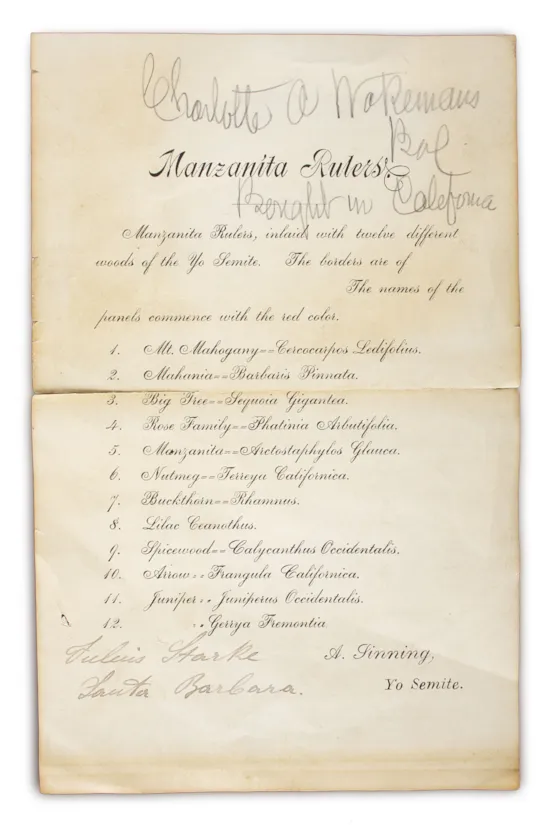 Charlotte A Wakemans
Manzanita Rulers
Bought in California
Manzanita Rulers, inlaid with twelve different
woods of the Yo Semite. The borders are of
The names of the
panels commence with the red color.
1. Mt. Mahogany==Cercocarpos Ledifolius.
2. Mahania==Barbaris Pinnata.
3. Big Tree==Sequoia Gigantea.
4. Rose Family==Phatinia Arbutifolia.
5. Manzanita==Arctostaphylos Glauca.
6. Nutmeg==Terreya Californica.
7. Buckthorn==Rhamnus.
8. Lilac Ceanothus.
9. Spicewood==Calycanthus Occidentalis.
10. Arrow==Frangula Californica.
11. Juniper==Juniperus Occidentalis.
12. ==Gerrya Fremontia
Julius Starke
A. Sinning,
Santa Barbara.
Yo Semite.